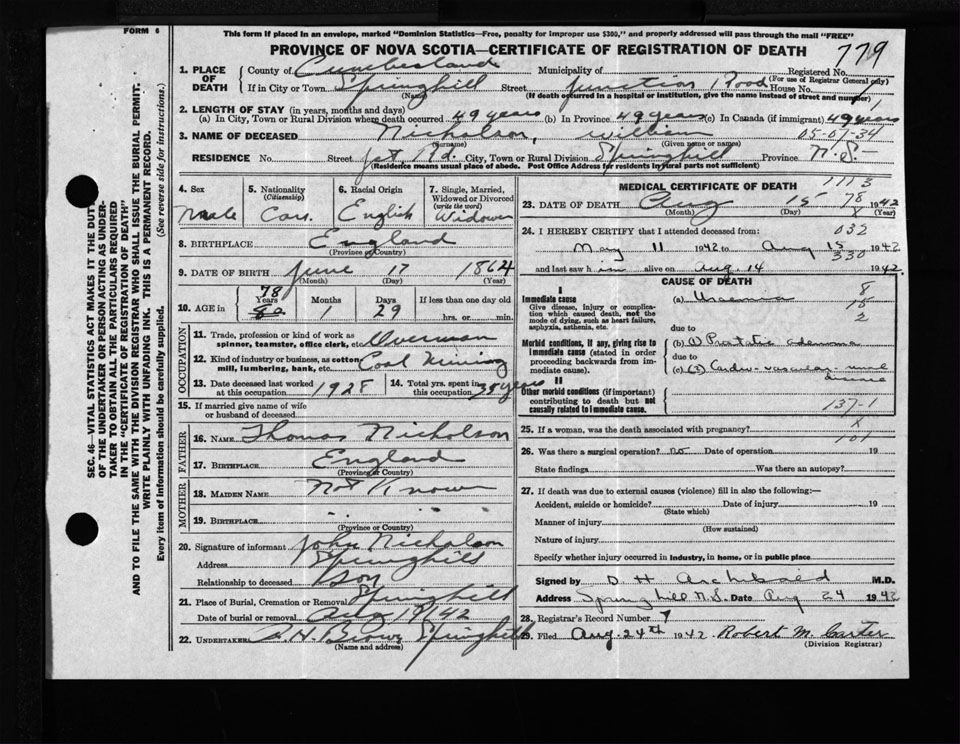 FORM 6
This form if placed in an envelope, marked "Dominion Statistics—Free, penalty for improper use $300," and properly addressed will pass through the mail "FREE"
PROVINCE OF NOVA SCOTIA—CERTIFICATE OF REGISTRATION OF DEATH
779
1. PLACE OF DEATH County of Cumberland Municipality of Registered No.
(For use of Registrar General only)
If in City or Town Springhill Street Junction Road House No.
(Name) (If death occurred in a hospital or institution, give the name instead of street and number)
2. LENGTH OF STAY (in years, months and days)
(a) In City, Town or Rural Division where death occurred 49 years (b) In Province 49 years (c) In Canada (if immigrant) 49 years
3. NAME OF DECEASED Nicholson, William 05-07-34
(Surname) (Given name or names)
RESIDENCE No. Street Jct Rd. City, Town or Rural Division Springhill Province N.S.
(Residence means usual place of abode. Post Office Address for residents in rural parts not sufficient)
4. Sex Male
5. Nationality (Citizenship) Can.
6. Racial Origin English
7. Single, Married, Widowed or Divorced (write the word) Widower
8. BIRTHPLACE England
(Province or Country)
9. DATE OF BIRTH June 17 1864
(Month) (Day) (Year)
10. AGE in 78 80 Years 1 Months 29 Days If less than one day old
hrs. or min.
OCCUPATION
11. Trade, profession or kind of work as spinner, teamster, office clerk, etc. Overman
12. Kind of industry or business, as cotton mill, lumbering, bank, etc. Coal Mining
13. Date deceased last worked at this occupation 1928
14. Total yrs. spent in this occupation 35 years
15. If married give name of wife or husband of deceased
FATHER
16. NAME Thomas Nicholson
17. BIRTHPLACE England
(Province or Country)
MOTHER
18. MAIDEN NAME Not Known
19. BIRTHPLACE " " "
(Province or Country)
20. Signature of informant John Nicholson
Address Springhill
Relationship to deceased Son
21. Place of Burial, Cremation or Removal Springhill
Date of burial or removal Aug 19/42
22. UNDERTAKER A.H. Brown Springhill
(Name and address)
MEDICAL CERTIFICATE OF DEATH 1113
23. DATE OF DEATH Aug 15 78 1942
(Month) (Day) x (Year)
24. I HEREBY CERTIFY that I attended deceased from: 032
May 11 1942 to Aug 15 1942
330
and last saw him alive on Aug. 14 1942.
CAUSE OF DEATH
I
Immediate cause (a) Uraemia
Give disease, injury or complication which caused death, not the mode of dying, such as heart failure, asphyxia, asthenia, etc.
due to
Morbid conditions, if any, giving rise to immediate cause (stated in order proceeding backwards from immediate cause).
(b) (1) Prostatic adenoma
due to
(c) (2) Cardio-vascular-renal disease
II
Other morbid conditions (if important) contributing to death but not causally related to immediate cause.
137-1
x
25. If a woman, was the death associated with pregnancy?
101
26. Was there a surgical operation? no Date of operation 19
State findings Was there an autopsy?
27. If death was due to external causes (violence) fill in also the following:—
Accident, suicide or homicide? Date of injury 19
(State which)
Manner of injury
(How sustained)
Nature of injury
Specify whether injury occurred in industry, in home, or in public place
Signed by D H Archibald M.D.
Address Springhill N.S. Date Aug 24 1942
28. Registrar's Record Number
29. Filed Aug. 24th 1942 Robert M. Carter
(Division Registrar)
SEC. 46—VITAL STATISTICS ACT MAKES IT THE DUTY
OF THE UNDERTAKER OR PERSON ACTING AS UNDER-
TAKER TO OBTAIN ALL THE PARTICULARS REQUIRED
IN THE "CERTIFICATE OF REGISTRATION OF DEATH"
AND TO FILE THE SAME WITH THE DIVISION REGISTRAR WHO SHALL ISSUE THE BURIAL PERMIT.
WRITE PLAINLY WITH UNFADING INK. THIS IS A PERMANENT RECORD.
Every item of information should be carefully supplied. (See reverse side for instructions.)